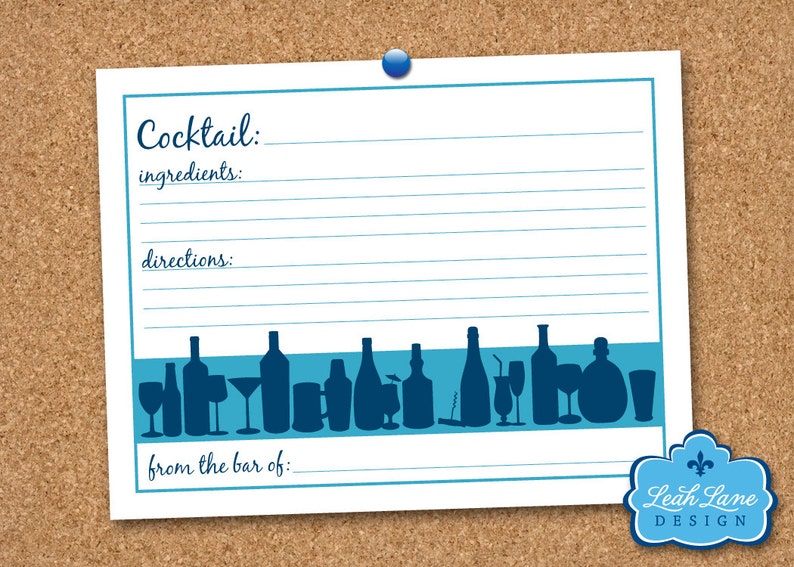 Cocktail:
ingredients:
directions:
from the bar of:
Leah Lane
DESIGN